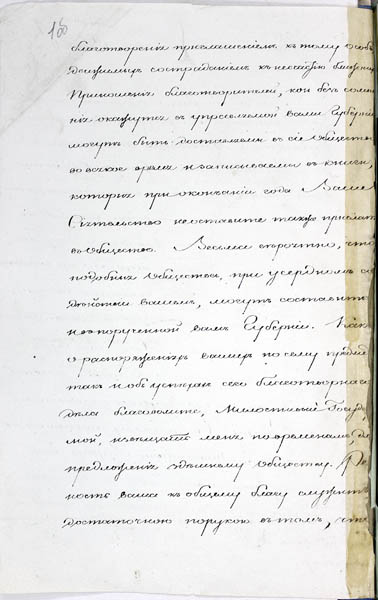 благотворенія приглашеніемъ къ тому особъ
движимыхъ состраданіемъ къ несчастію ближнихъ
Приношенія благотворителей, кои безъ сомнѣ-
нія окажутся въ управляемой вами Губерніи
могутъ быть доставляемы въ сіе Общество
во всякое время и записываемы въ книги,
которыя при окончаніи года Ваше
Сіятельство неоставите также прислать
въ Общество. Весьма вѣроятно, что
подобныя Общества, при усердномъ со-
дѣйствіи вашемъ, могутъ составиться
и въ порученной вамъ Губерніи. Какъ
о распоряженіяхъ вашихъ по сему предмету
такъ и объ успѣхахъ сего благотворнаго
дѣла благоволите, Милостивый Государь
мой, извѣщать меня по временамъ, для
предложенія здѣшнему Обществу. Рев-
ность ваша къ общему благу служитъ
достаточною порукою въ томъ, что